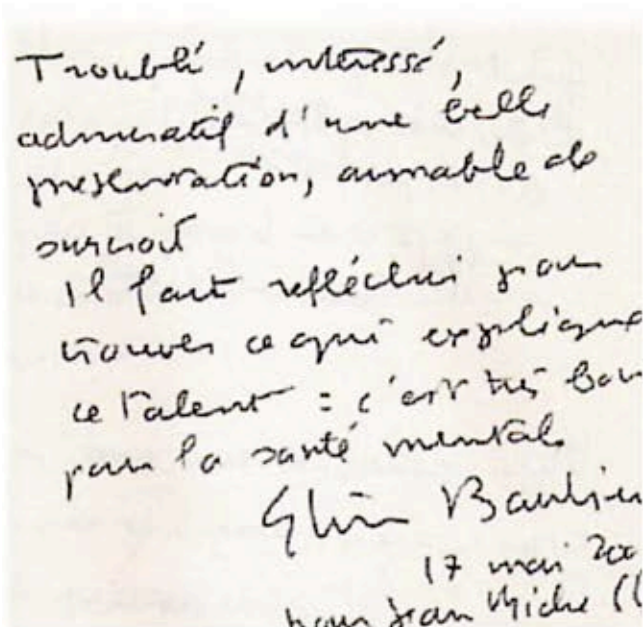 Troublé, intéressé,
admiratif d'une belle
présentation, aimable de
surcroît
Il faut réfléchir pour
trouver ce qui explique
ce talent : c'est très bon
pour la santé mentale
Baulieu
17 mai 200
pour Jean Miche